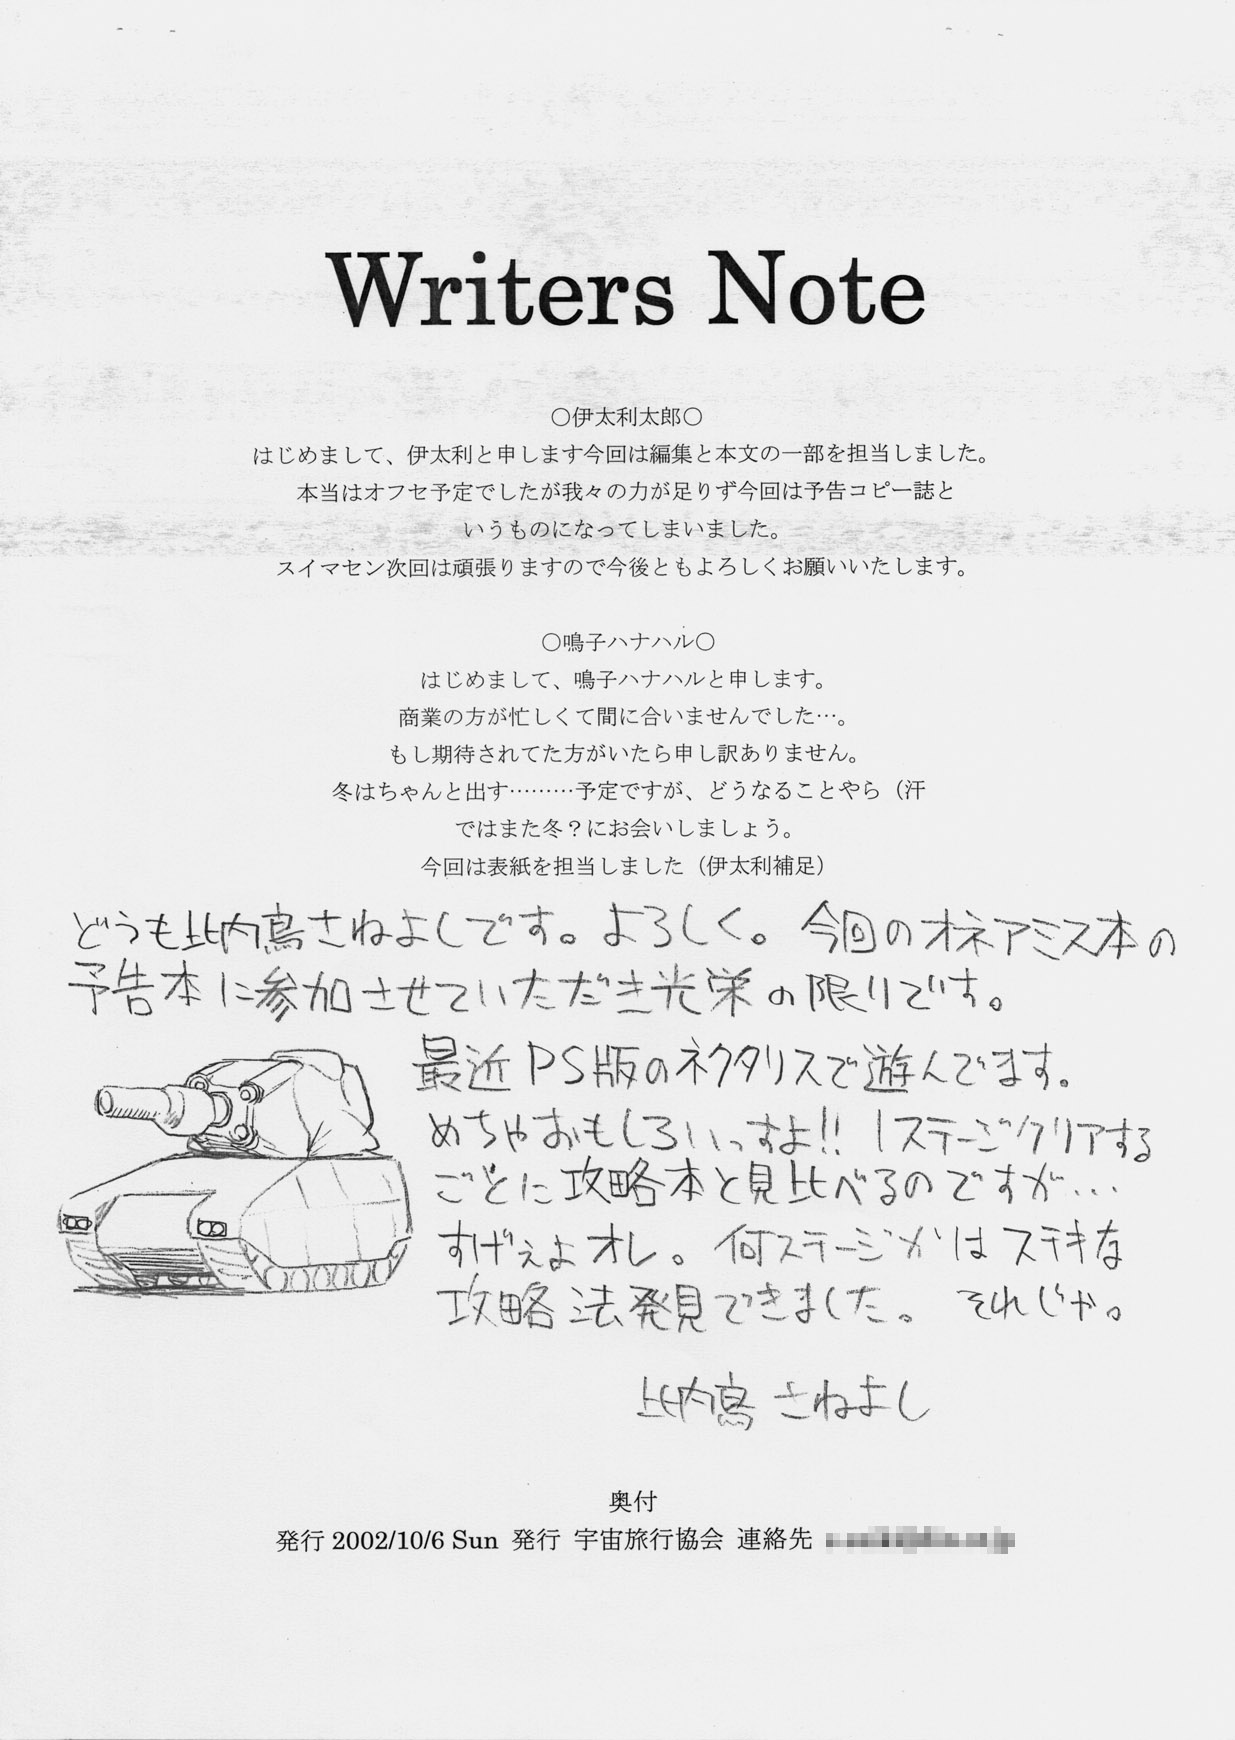 Writers Note
○伊太利太郎○
はじめまして、伊太利と申します今回は編集と本文の一部を担当しました。
本当はオフセ予定でしたが我々の力が足りず今回は予告コピー誌と
いうものになってしまいました。
スイマセン次回は頑張りますので今後ともよろしくお願いいたします。
○鳴子ハナハル○
はじめまして、鳴子ハナハルと申します。
商業の方が忙しくて間に合いませんでした…。
もし期待されてた方がいたら申し訳ありません。
冬はちゃんと出す………予定ですが、どうなることやら（汗
ではまた冬？にお会いしましょう。
今回は表紙を担当しました（伊太利補足）
どうも比内鳥さねよしです。よろしく。今回のオネアミス本の
予告本に参加させていただき光栄の限りです。
最近PS版のネクタリスで遊んでます。
めちゃおもしろいっすよ!! 1ステージクリアする
ごとに攻略本と見比べるのですが…
すげぇよオレ。何ステージかはステキな
攻略法発見できました。 それじゃ。
比内鳥 さねよし
奥付
発行 2002/10/6 Sun 発行 宇宙旅行協会 連絡先